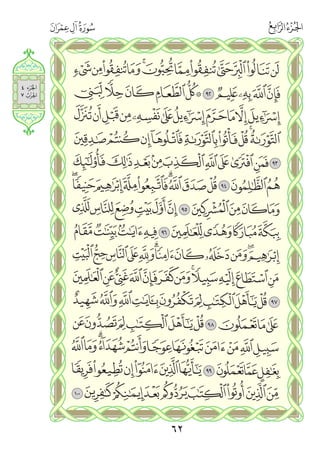 الجزء الرابع سورة آل عمران
الجزء ٤
الحزب ٧
لَن تَنَالُوا۟ ٱلْبِرَّ حَتَّىٰ تُنفِقُوا۟ مِمَّا تُحِبُّونَ ۚ وَمَا تُنفِقُوا۟ مِن شَىْءٍ
فَإِنَّ ٱللَّهَ بِهِۦ عَلِيمٌ ٩٢ ۞ كُلُّ ٱلطَّعَامِ كَانَ حِلًّا لِّبَنِىٓ
إِسْرَٰٓءِيلَ إِلَّا مَا حَرَّمَ إِسْرَٰٓءِيلُ عَلَىٰ نَفْسِهِۦ مِن قَبْلِ أَن تُنَزَّلَ
ٱلتَّوْرَىٰةُ ۗ قُلْ فَأْتُوا۟ بِٱلتَّوْرَىٰةِ فَٱتْلُوهَآ إِن كُنتُمْ صَٰدِقِينَ
٩٣ فَمَنِ ٱفْتَرَىٰ عَلَى ٱللَّهِ ٱلْكَذِبَ مِنۢ بَعْدِ ذَٰلِكَ فَأُو۟لَٰٓئِكَ
هُمُ ٱلظَّٰلِمُونَ ٩٤ قُلْ صَدَقَ ٱللَّهُ ۗ فَٱتَّبِعُوا۟ مِلَّةَ إِبْرَٰهِيمَ حَنِيفًا
وَمَا كَانَ مِنَ ٱلْمُشْرِكِينَ ٩٥ إِنَّ أَوَّلَ بَيْتٍ وُضِعَ لِلنَّاسِ لَلَّذِى
بِبَكَّةَ مُبَارَكًا وَهُدًى لِّلْعَٰلَمِينَ ٩٦ فِيهِ ءَايَٰتٌۢ بَيِّنَٰتٌ مَّقَامُ
إِبْرَٰهِيمَ ۖ وَمَن دَخَلَهُۥ كَانَ ءَامِنًا ۗ وَلِلَّهِ عَلَى ٱلنَّاسِ حِجُّ ٱلْبَيْتِ
مَنِ ٱسْتَطَاعَ إِلَيْهِ سَبِيلًا ۚ وَمَن كَفَرَ فَإِنَّ ٱللَّهَ غَنِىٌّ عَنِ ٱلْعَٰلَمِينَ
٩٧ قُلْ يَٰٓأَهْلَ ٱلْكِتَٰبِ لِمَ تَكْفُرُونَ بِـَٔايَٰتِ ٱللَّهِ وَٱللَّهُ شَهِيدٌ
عَلَىٰ مَا تَعْمَلُونَ ٩٨ قُلْ يَٰٓأَهْلَ ٱلْكِتَٰبِ لِمَ تَصُدُّونَ عَن
سَبِيلِ ٱللَّهِ مَنْ ءَامَنَ تَبْغُونَهَا عِوَجًا وَأَنتُمْ شُهَدَآءُ ۗ وَمَا ٱللَّهُ
بِغَٰفِلٍ عَمَّا تَعْمَلُونَ ٩٩ يَٰٓأَيُّهَا ٱلَّذِينَ ءَامَنُوٓا۟ إِن تُطِيعُوا۟ فَرِيقًا
مِّنَ ٱلَّذِينَ أُوتُوا۟ ٱلْكِتَٰبَ يَرُدُّوكُم بَعْدَ إِيمَٰنِكُمْ كَٰفِرِينَ ١٠٠
٦٢